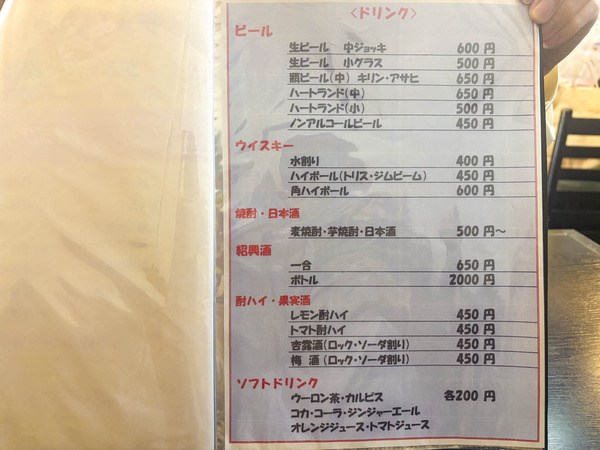 〈ドリンク〉
ビール
生ビール 中ジョッキ 600円
生ビール 小グラス 500円
瓶ビール(中) キリン・アサヒ 650円
ハートランド(中) 650円
ハートランド(小) 500円
ノンアルコールビール 450円
ウイスキー
水割り 400円
ハイボール(トリス・ジムビーム) 450円
角ハイボール 600円
焼酎・日本酒
麦焼酎・芋焼酎・日本酒 500円~
紹興酒
一合 650円
ボトル 2000円
酎ハイ・果実酒
レモン酎ハイ 450円
トマト酎ハイ 450円
杏露酒(ロック・ソーダ割り) 450円
梅 酒(ロック・ソーダ割り) 450円
ソフトドリンク
ウーロン茶・カルピス 各200円
コカ・コーラ・ジンジャーエール
オレンジジュース・トマトジュース